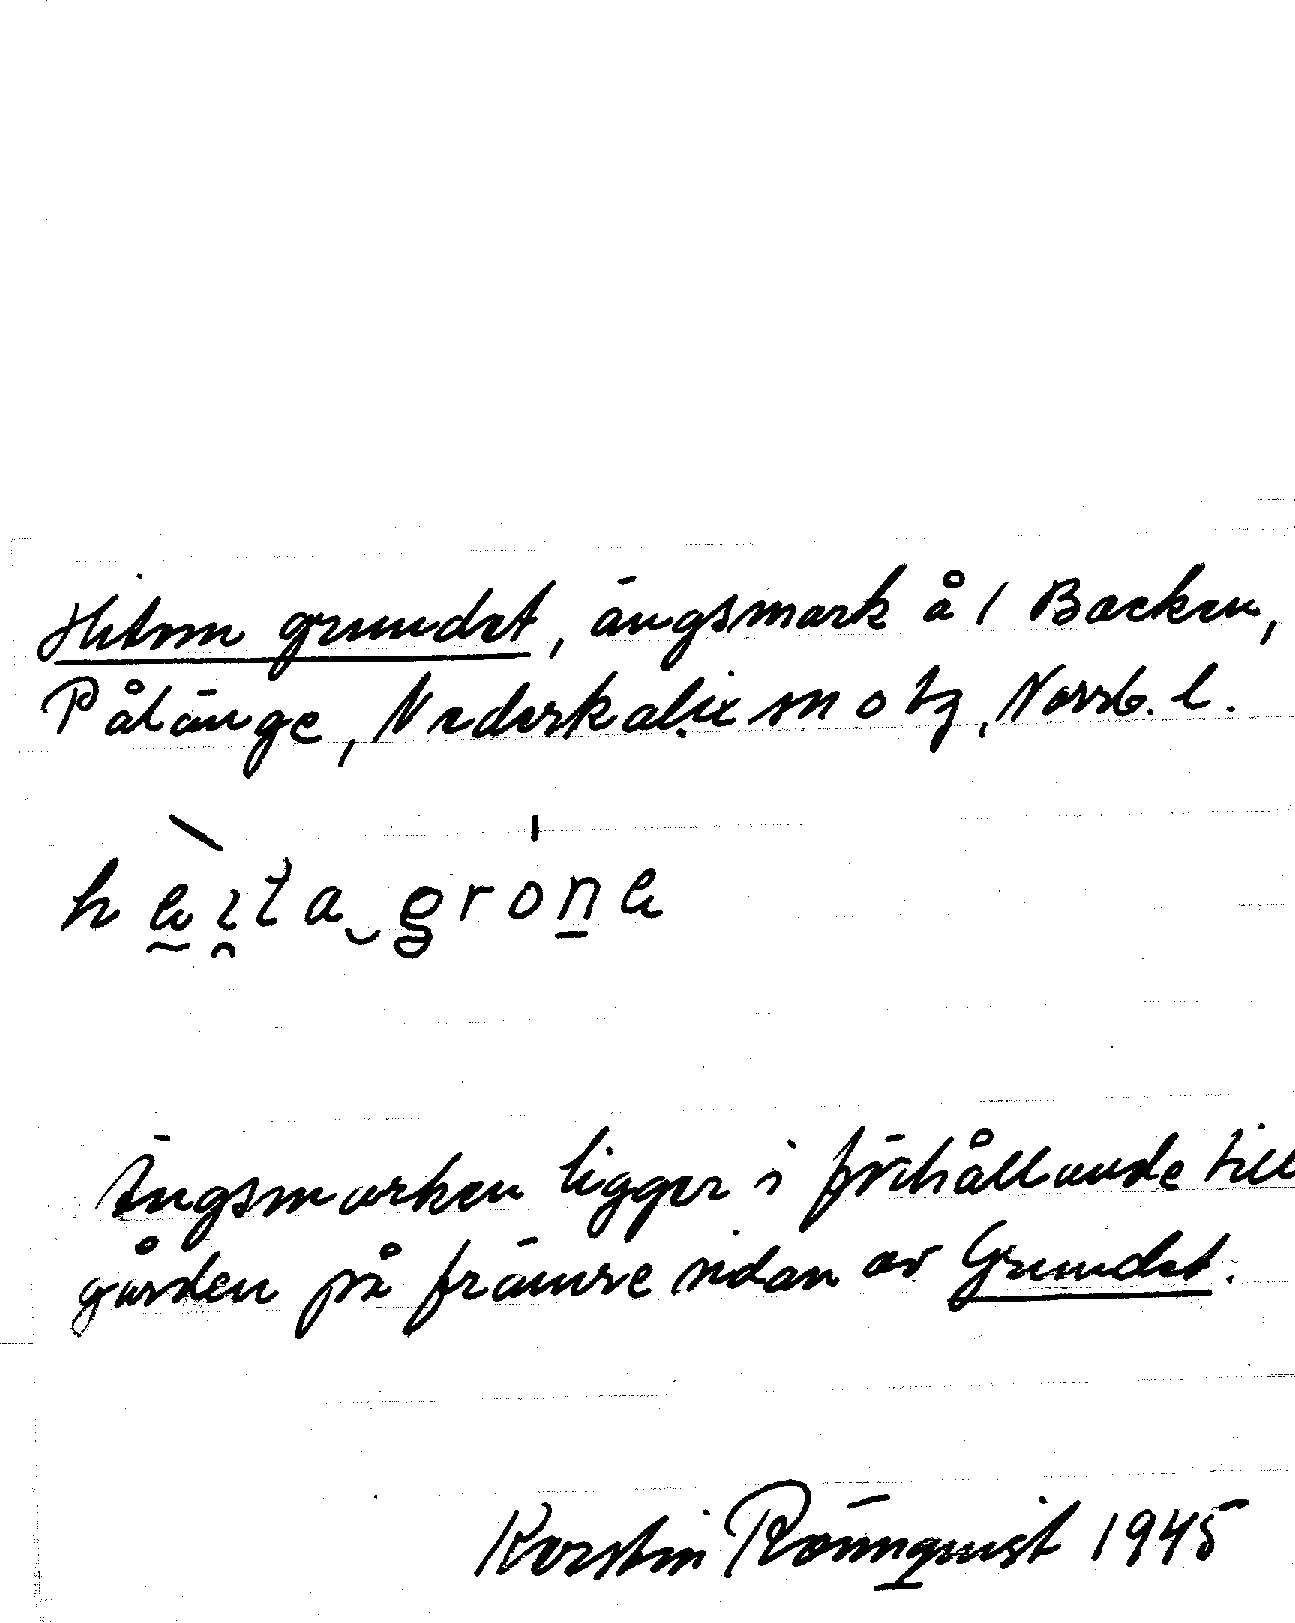 Hitom grundet, ängsmark å 1 Backen,
Pålänge, Nederkalix sn o tg, Norrb. l.
Ängsmarken ligger i förhållande till
gården på främre sidan av Grundet.
Kerstin Rönnquist 1945